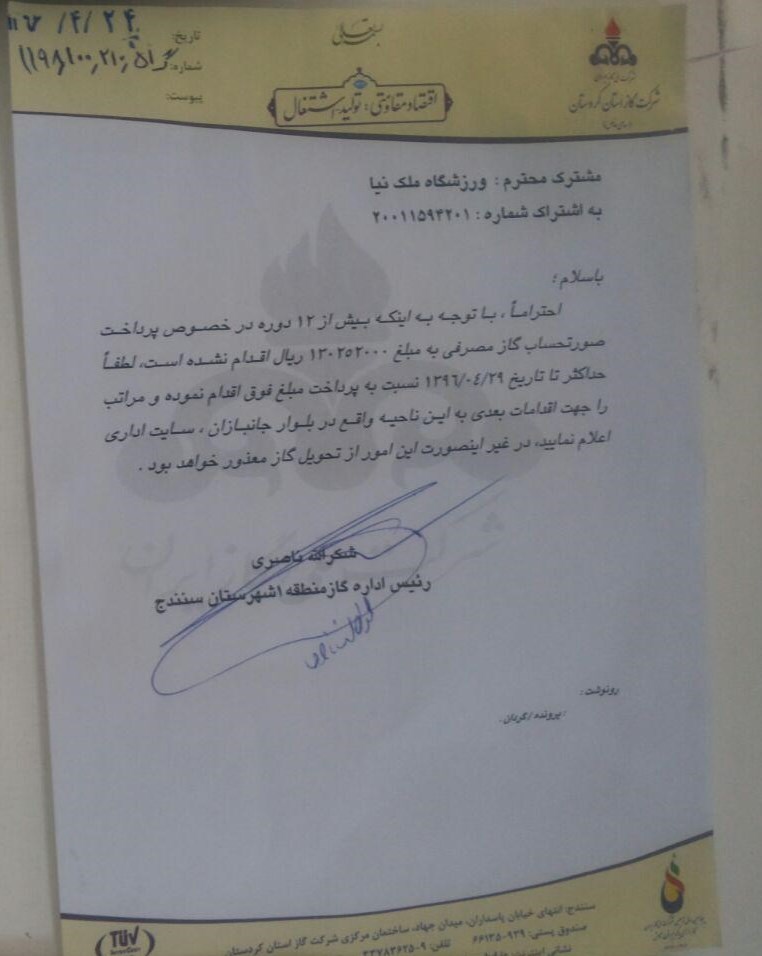 بسمه تعالی
تاریخ:
شماره:
پیوست:
اقتصاد مقاومتی: تولید، اشتغال
شرکت گاز استان کردستان
مشترک محترم : ورزشگاه ملک نیا
به اشتراک شماره : ۲۰۰۱۱۵۹۴۲۰۱
باسلام ؛
احتراماً ، با توجه به اینکه بیش از ۱۲ دوره در خصوص پرداخت
صورتحساب گاز مصرفی به مبلغ ۱۳۰۲۵۲۰۰۰ ریال اقدام نشده است، لطفاً
حداکثر تا تاریخ ۱۳۹۶/۰۴/۲۹ نسبت به پرداخت مبلغ فوق اقدام نموده و مراتب
را جهت اقدامات بعدی به این ناحیه واقع در بلوار جانبازان ، سایت اداری
اعلام نمایید، در غیر اینصورت این امور از تحویل گاز معذور خواهد بود .
شکرالله ناصری
رئیس اداره گاز منطقه ۱ شهرستان سنندج
رونوشت:
/پرونده /گردان.
سنندج: انتهای خیابان پاسداران، میدان جهاد، ساختمان مرکزی شرکت گاز استان کردستان
صندوق پستی: ۹۳۹-۶۶۱۳۵ تلفن: ۹-۳۳۷۸۳۶۲۵
TÜV